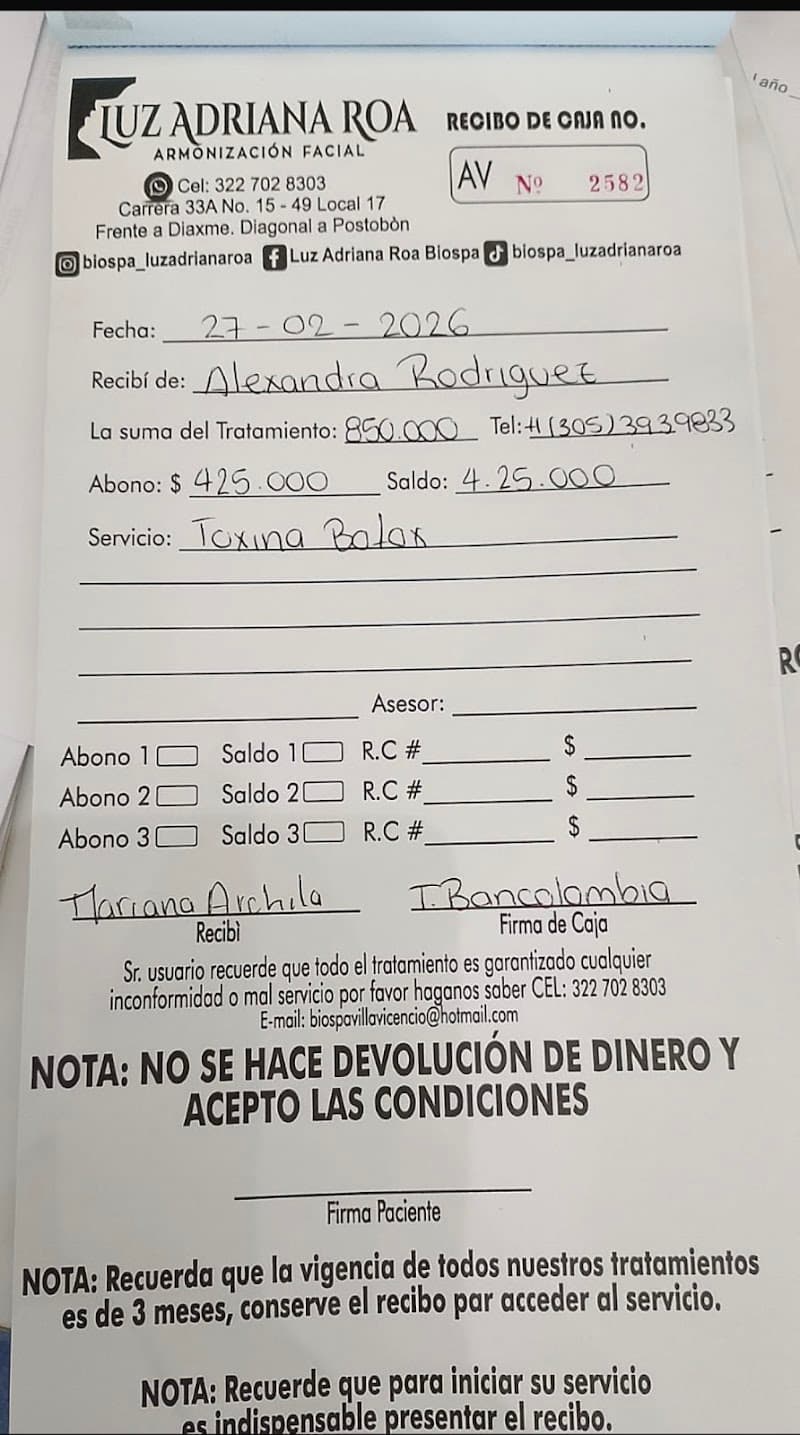 LUZ ADRIANA ROA
ARMONIZACIÓN FACIAL
RECIBO DE CAJA NO.
AV Nº 2582
Cel: 322 702 8303
Carrera 33A No. 15 - 49 Local 17
Frente a Diaxme. Diagonal a Postobòn
biospa_luzadrianaroa Luz Adriana Roa Biospa biospa_luzadrianaroa
año
Fecha: 27-02-2026
Recibí de: Alexandra Rodriguez
La suma del Tratamiento: 850.000 Tel: +1(305)3939833
Abono: $ 425.000 Saldo: 4.25.000
Servicio: Toxina Botox
Asesor:
Abono 1 Saldo 1 R.C # $
Abono 2 Saldo 2 R.C # $
Abono 3 Saldo 3 R.C # $
Mariana Archila T. Bancolombia
Recibì Firma de Caja
Sr. usuario recuerde que todo el tratamiento es garantizado cualquier
inconformidad o mal servicio por favor haganos saber CEL: 322 702 8303
E-mail: biospavillavicencio@hotmail.com
NOTA: NO SE HACE DEVOLUCIÓN DE DINERO Y
ACEPTO LAS CONDICIONES
Firma Paciente
NOTA: Recuerda que la vigencia de todos nuestros tratamientos
es de 3 meses, conserve el recibo par acceder al servicio.
NOTA: Recuerde que para iniciar su servicio
es indispensable presentar el recibo.